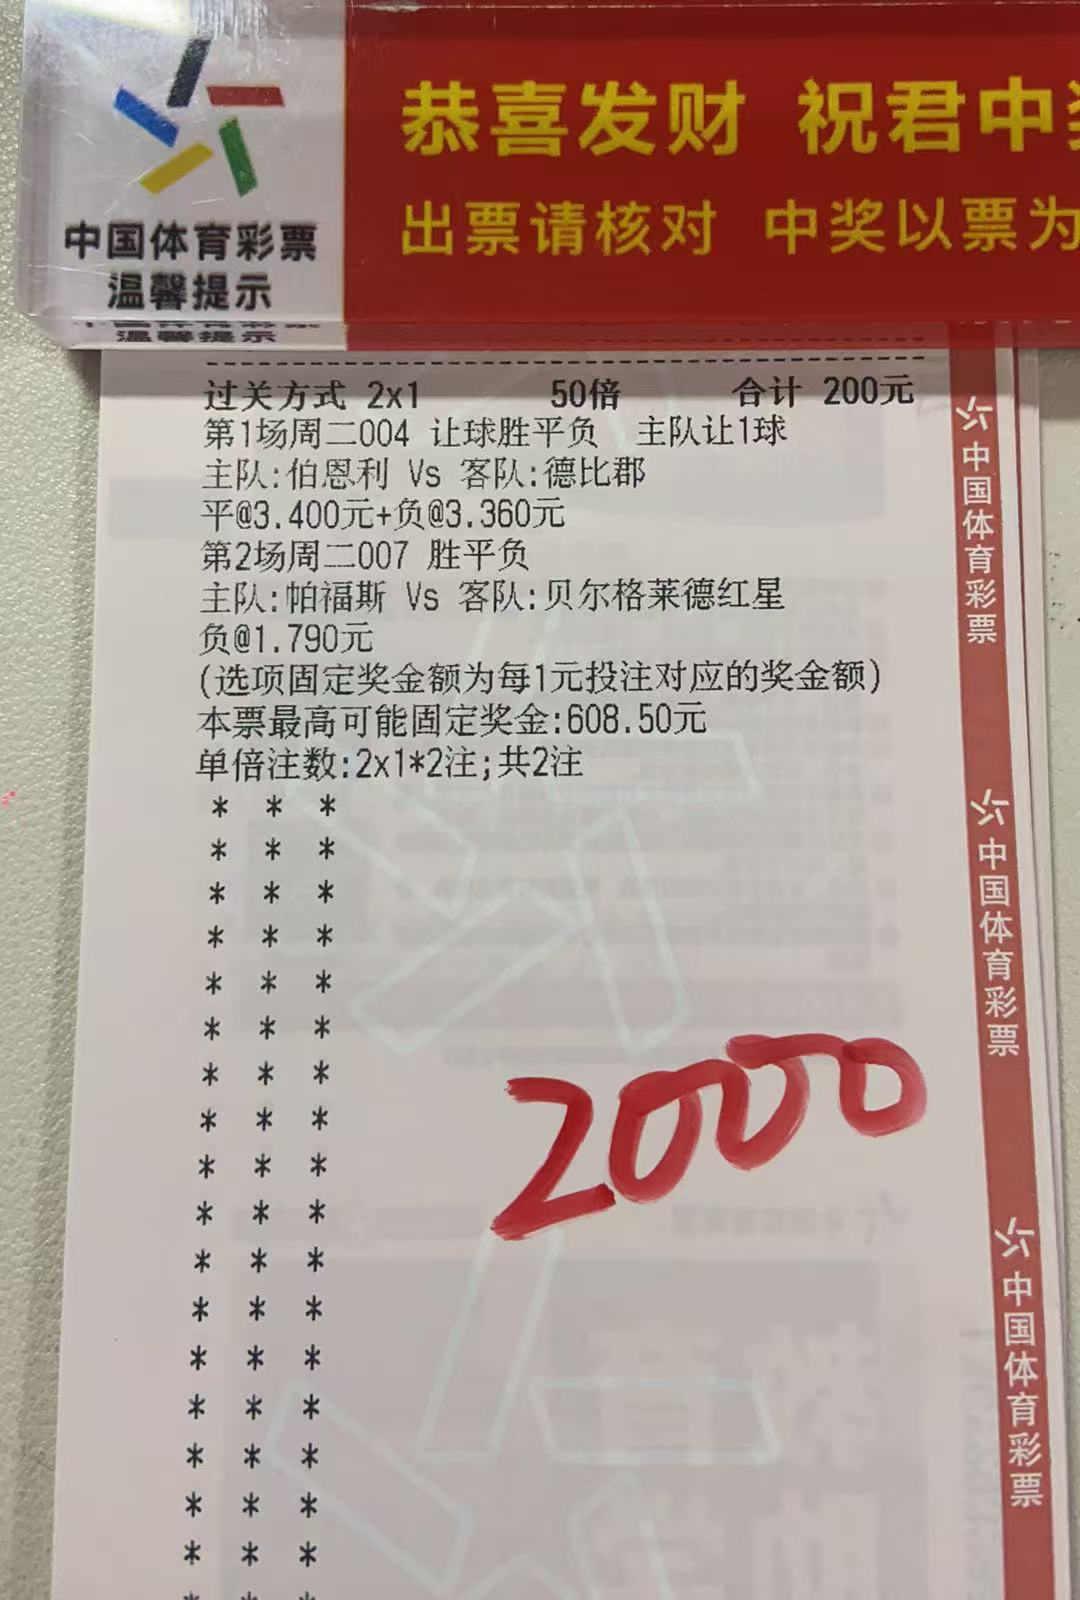 恭喜发财 祝君中
出票请核对 中奖以票为
中国体育彩票
温馨提示
过关方式 2x1 50倍 合计 200元
第1场周二004 让球胜平负 主队让1球
主队:伯恩利 Vs 客队:德比郡
平@3.400元+负@3.360元
第2场周二007 胜平负
主队:帕福斯 Vs 客队:贝尔格莱德红星
负@1.790元
(选项固定奖金额为每1元投注对应的奖金额)
本票最高可能固定奖金:608.50元
单倍注数:2x1*2注;共2注
* * *
* * *
* * *
* * *
* * *
* * *
* * *
* * *
* * *
* * *
* * *
* * *
* * *
* * *
* * *
* * *
* * *
* * *
2000
中国体育彩票
中国体育彩票
中国体育彩票